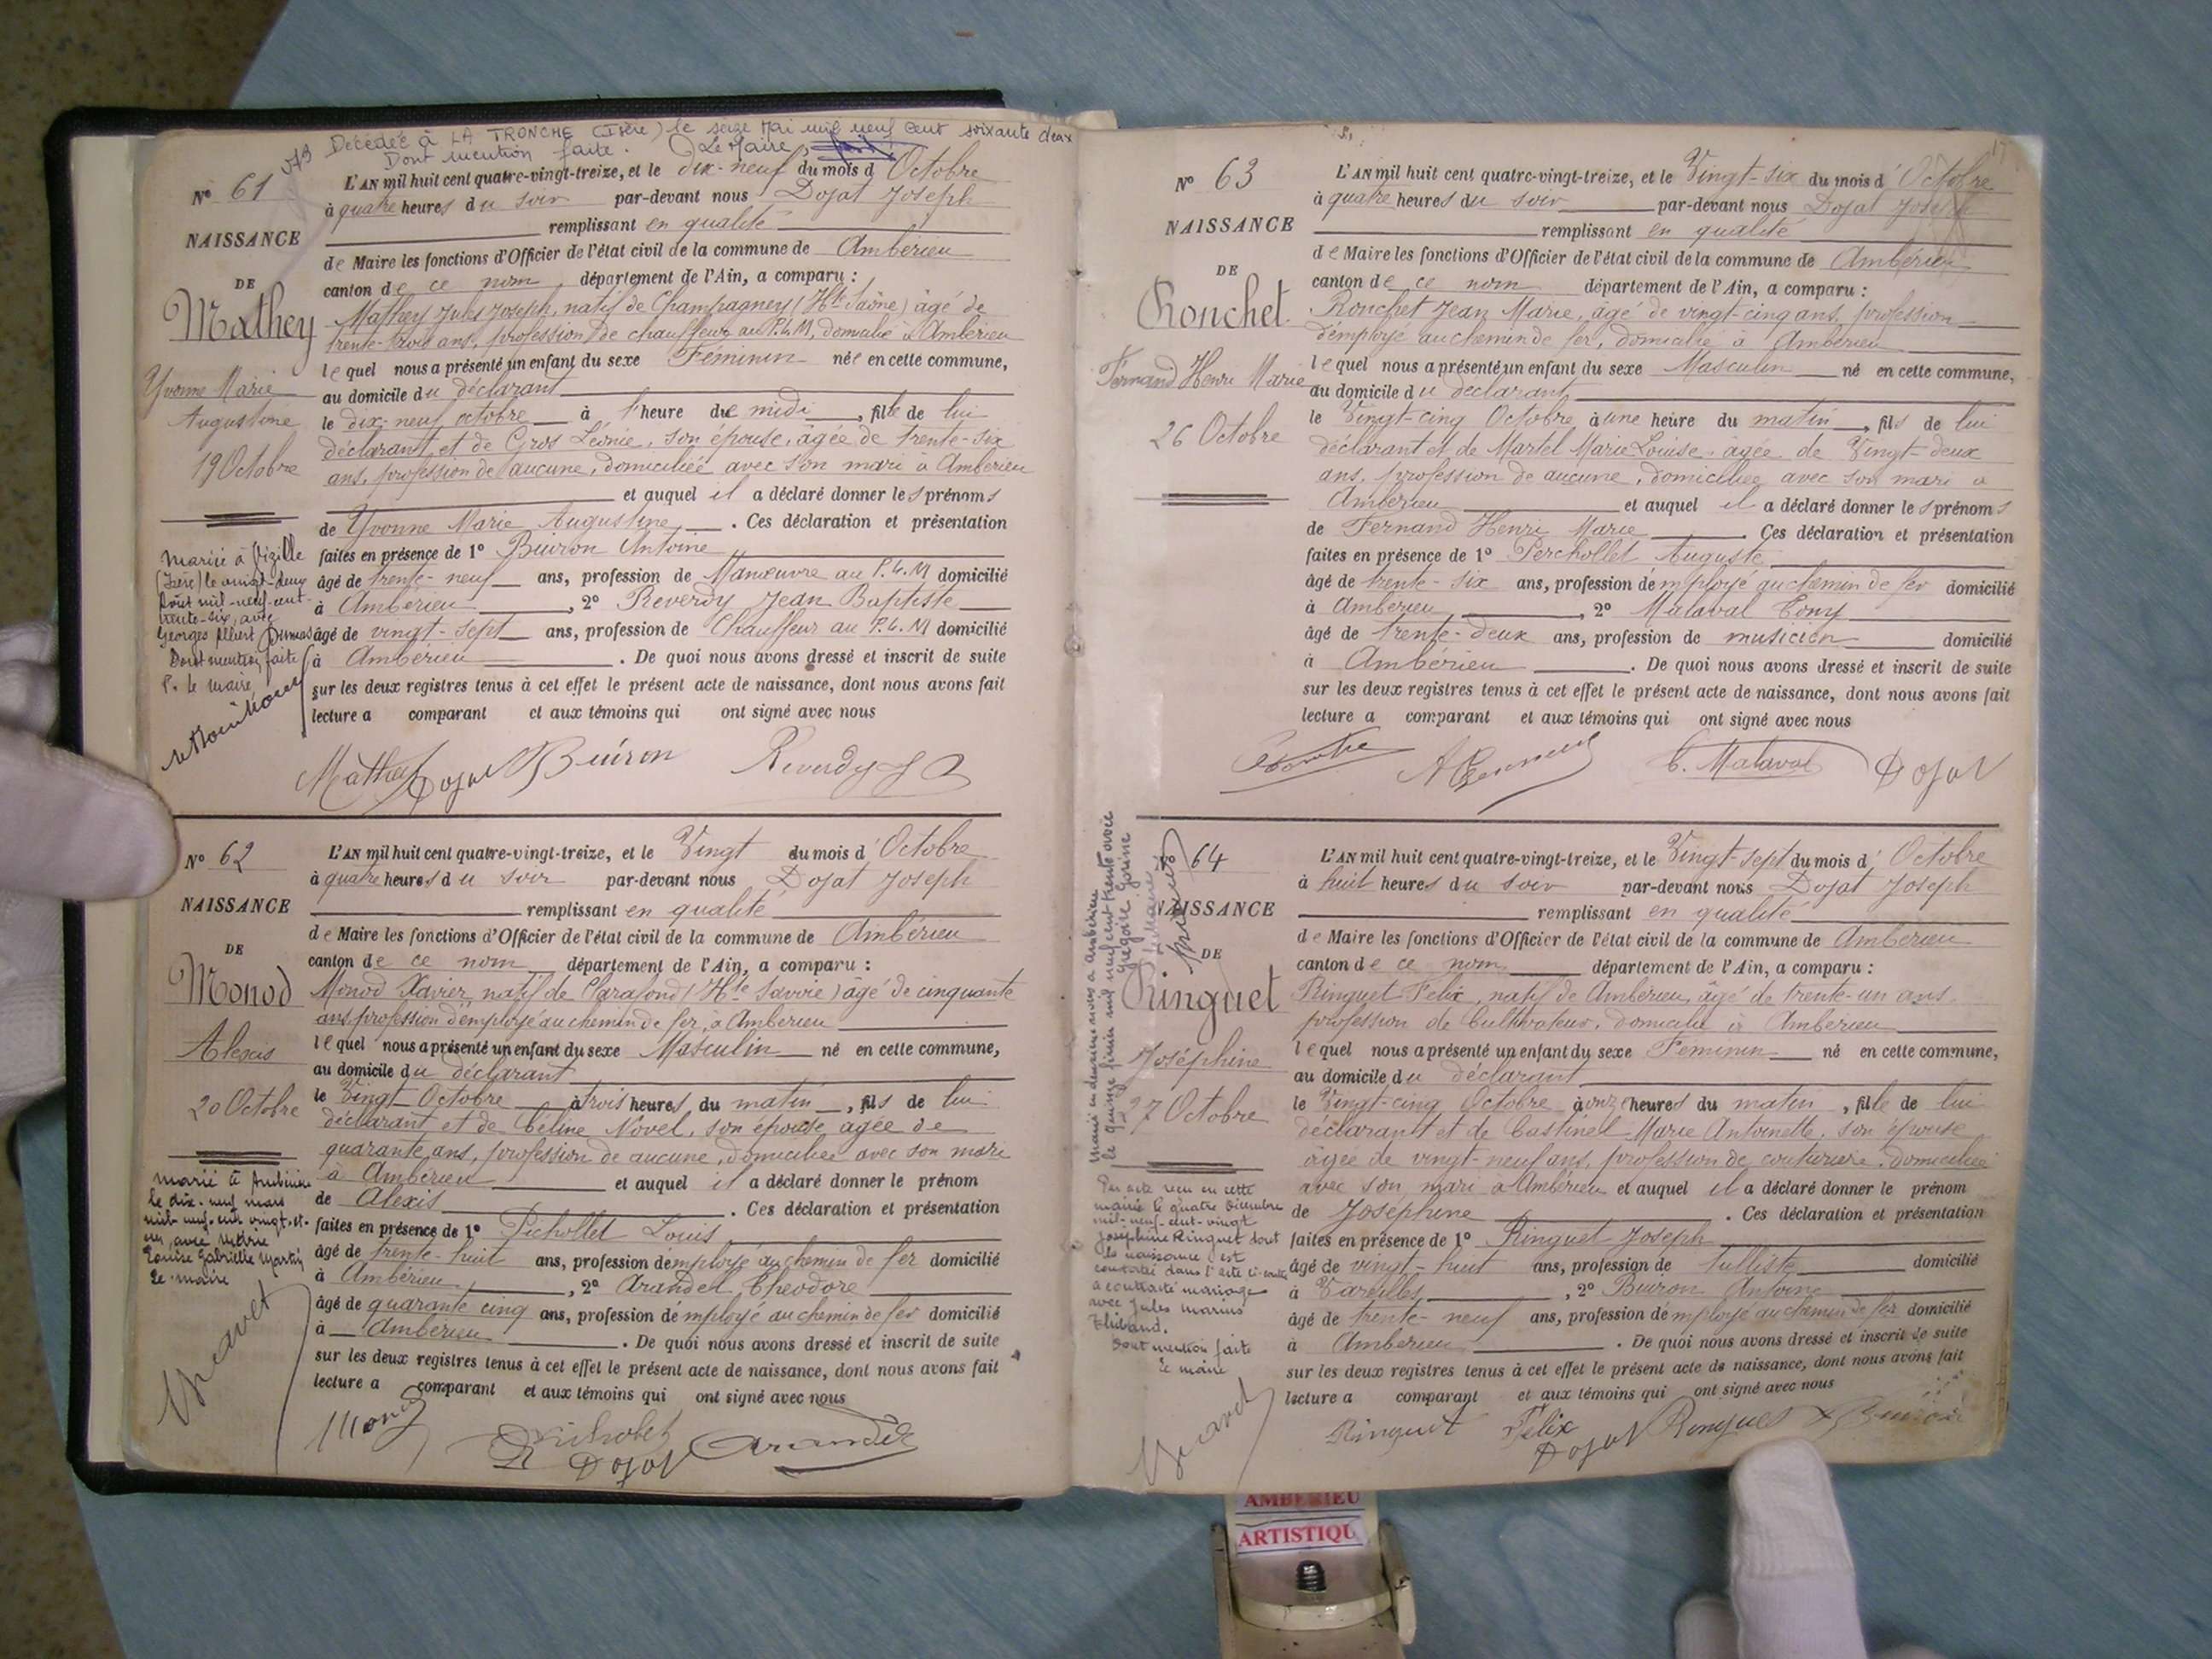 Décédée à LA TRONCHE (Isère) le seize Mai mil neuf cent soixante deux
Dont mention faite. Le Maire,
N° 61
NAISSANCE
DE
Mathey
Yvonne Marie
Augustine
19 Octobre
Mariée à Vizille
(Isère) le vingt-deux
Août mil-neuf-cent-
trente-six, avec
Georges Albert Dumas
Dont mention faite
P. le Maire,
L'AN mil huit cent quatre-vingt-treize, et le dix-neuf du mois d Octobre
à quatre heures du soir par-devant nous Dojat Joseph
remplissant en qualité
de Maire les fonctions d'Officier de l'état civil de la commune de Ambérieu
canton de ce nom département de l'Ain, a comparu :
Mathey Jules Joseph, natif de Champagney (Hte Saône) âgé de
trente-trois ans, profession de chauffeur au P.L.M, domicilié à Ambérieu
lequel nous a présenté un enfant du sexe Féminin née en cette commune,
au domicile du déclarant
le dix-neuf octobre à l'heure de midi, fille de lui
déclarant et de Gros Léonie, son épouse, âgée de trente-six
ans, profession de aucune, domiciliée avec son mari à Ambérieu
et auquel il a déclaré donner les prénoms
de Yvonne Marie Augustine. Ces déclaration et présentation
faites en présence de 1° Buiron Antoine
âgé de trente-neuf ans, profession de Manœuvre au P.L.M domicilié
à Ambérieu, 2° Reverdy Jean Baptiste
âgé de vingt-sept ans, profession de Chauffeur au P.L.M domicilié
à Ambérieu. De quoi nous avons dressé et inscrit de suite
sur les deux registres tenus à cet effet le présent acte de naissance, dont nous avons fait
lecture a comparant et aux témoins qui ont signé avec nous
Mathey Dojat Buiron Reverdy J B
N° 62
NAISSANCE
DE
Monod
Alexis
20 Octobre
marié à Ambérieu
le dix-neuf mars
mil-neuf-cent vingt-et-
un, avec Marie
Louise Gabrielle Martin
Le maire
L'AN mil huit cent quatre-vingt-treize, et le Vingt du mois d'Octobre
à quatre heures du soir par-devant nous Dojat Joseph
remplissant en qualité
de Maire les fonctions d'Officier de l'état civil de la commune de Ambérieu
canton de ce nom département de l'Ain, a comparu :
Monod Xavier, natif de (Hte Savoie) âgé de cinquante
ans, profession d'employé au chemin de fer, à Ambérieu
lequel nous a présenté un enfant du sexe Masculin né en cette commune,
au domicile du déclarant
le Vingt Octobre à trois heures du matin, fils de lui
déclarant et de Céline Novel, son épouse, âgée de
quarante ans, profession de aucune, domiciliée avec son mari
à Ambérieu et auquel il a déclaré donner le prénom
de Alexis. Ces déclaration et présentation
faites en présence de 1° Pichollet Louis
âgé de trente-huit ans, profession d'employé au chemin de fer domicilié
à Ambérieu, 2° Arandel Théodore
âgé de quarante cinq ans, profession d'employé au chemin de fer domicilié
à Ambérieu. De quoi nous avons dressé et inscrit de suite
sur les deux registres tenus à cet effet le présent acte de naissance, dont nous avons fait
lecture a comparant et aux témoins qui ont signé avec nous
Monod Pichollet Dojat Arandel
17
N° 63
NAISSANCE
DE
Ronchet
Fernand Henri Marie
26 Octobre
L'AN mil huit cent quatre-vingt-treize, et le Vingt-six du mois d'Octobre
à quatre heures du soir par-devant nous Dojat Joseph
remplissant en qualité
de Maire les fonctions d'Officier de l'état civil de la commune de Ambérieu
canton de ce nom département de l'Ain, a comparu :
Ronchet Jean Marie, âgé de vingt-cinq ans, profession
d'employé au chemin de fer, domicilié à Ambérieu
lequel nous a présenté un enfant du sexe Masculin né en cette commune,
au domicile du déclarant
le Vingt-cinq Octobre à une heure du matin, fils de lui
déclarant et de Martel Marie Louise âgée de Vingt-deux
ans, profession de aucune, domiciliée avec son mari à
Ambérieu et auquel il a déclaré donner les prénoms
de Fernand Henri Marie. Ces déclaration et présentation
faites en présence de 1° Perchollet Auguste
âgé de trente-six ans, profession d'employé au chemin de fer domicilié
à Ambérieu, 2° Malaval Tony
âgé de trente-deux ans, profession de musicien domicilié
à Ambérieu. De quoi nous avons dressé et inscrit de suite
sur les deux registres tenus à cet effet le présent acte de naissance, dont nous avons fait
lecture a comparant et aux témoins qui ont signé avec nous
C. Malaval Dojat
64
NAISSANCE
DE
Ringuet
Joséphine
27 Octobre
le quinze juin mil neuf cent trente
Par acte reçu en cette
mairie le quatre Décembre
mil-neuf-cent-vingt
Joséphine Ringuet dont
la naissance est
constatée dans l'acte ci-contre
a contracté mariage
avec Jules Marius
Thiband.
Dont mention faite
Le maire
L'AN mil huit cent quatre-vingt-treize, et le Vingt-sept du mois d'Octobre
à huit heures du soir par-devant nous Dojat Joseph
remplissant en qualité
de Maire les fonctions d'Officier de l'état civil de la commune de Ambérieu
canton de ce nom département de l'Ain, a comparu :
Ringuet Felix, natif de Ambérieu, âgé de trente-un ans
profession de Cultivateur, domicilié à Ambérieu
lequel nous a présenté un enfant du sexe Féminin né en cette commune,
au domicile du déclarant
le Vingt-cinq Octobre à onze heures du matin, fille de lui
déclarant et de Castinel Marie Antoinette, son épouse
âgée de vingt-neuf ans, profession de couturière, domiciliée
avec son mari à Ambérieu et auquel il a déclaré donner le prénom
de Joséphine. Ces déclaration et présentation
faites en présence de 1° Ringuet Joseph
âgé de vingt-huit ans, profession de tulliste domicilié
à, 2° Buiron Antoine
âgé de trente-neuf ans, profession d'employé au chemin de fer domicilié
à Ambérieu. De quoi nous avons dressé et inscrit de suite
sur les deux registres tenus à cet effet le présent acte de naissance, dont nous avons fait
lecture a comparant et aux témoins qui ont signé avec nous
Ringuet Félix Dojat Ringuet Buiron
AMBERIEU
ARTISTIQU